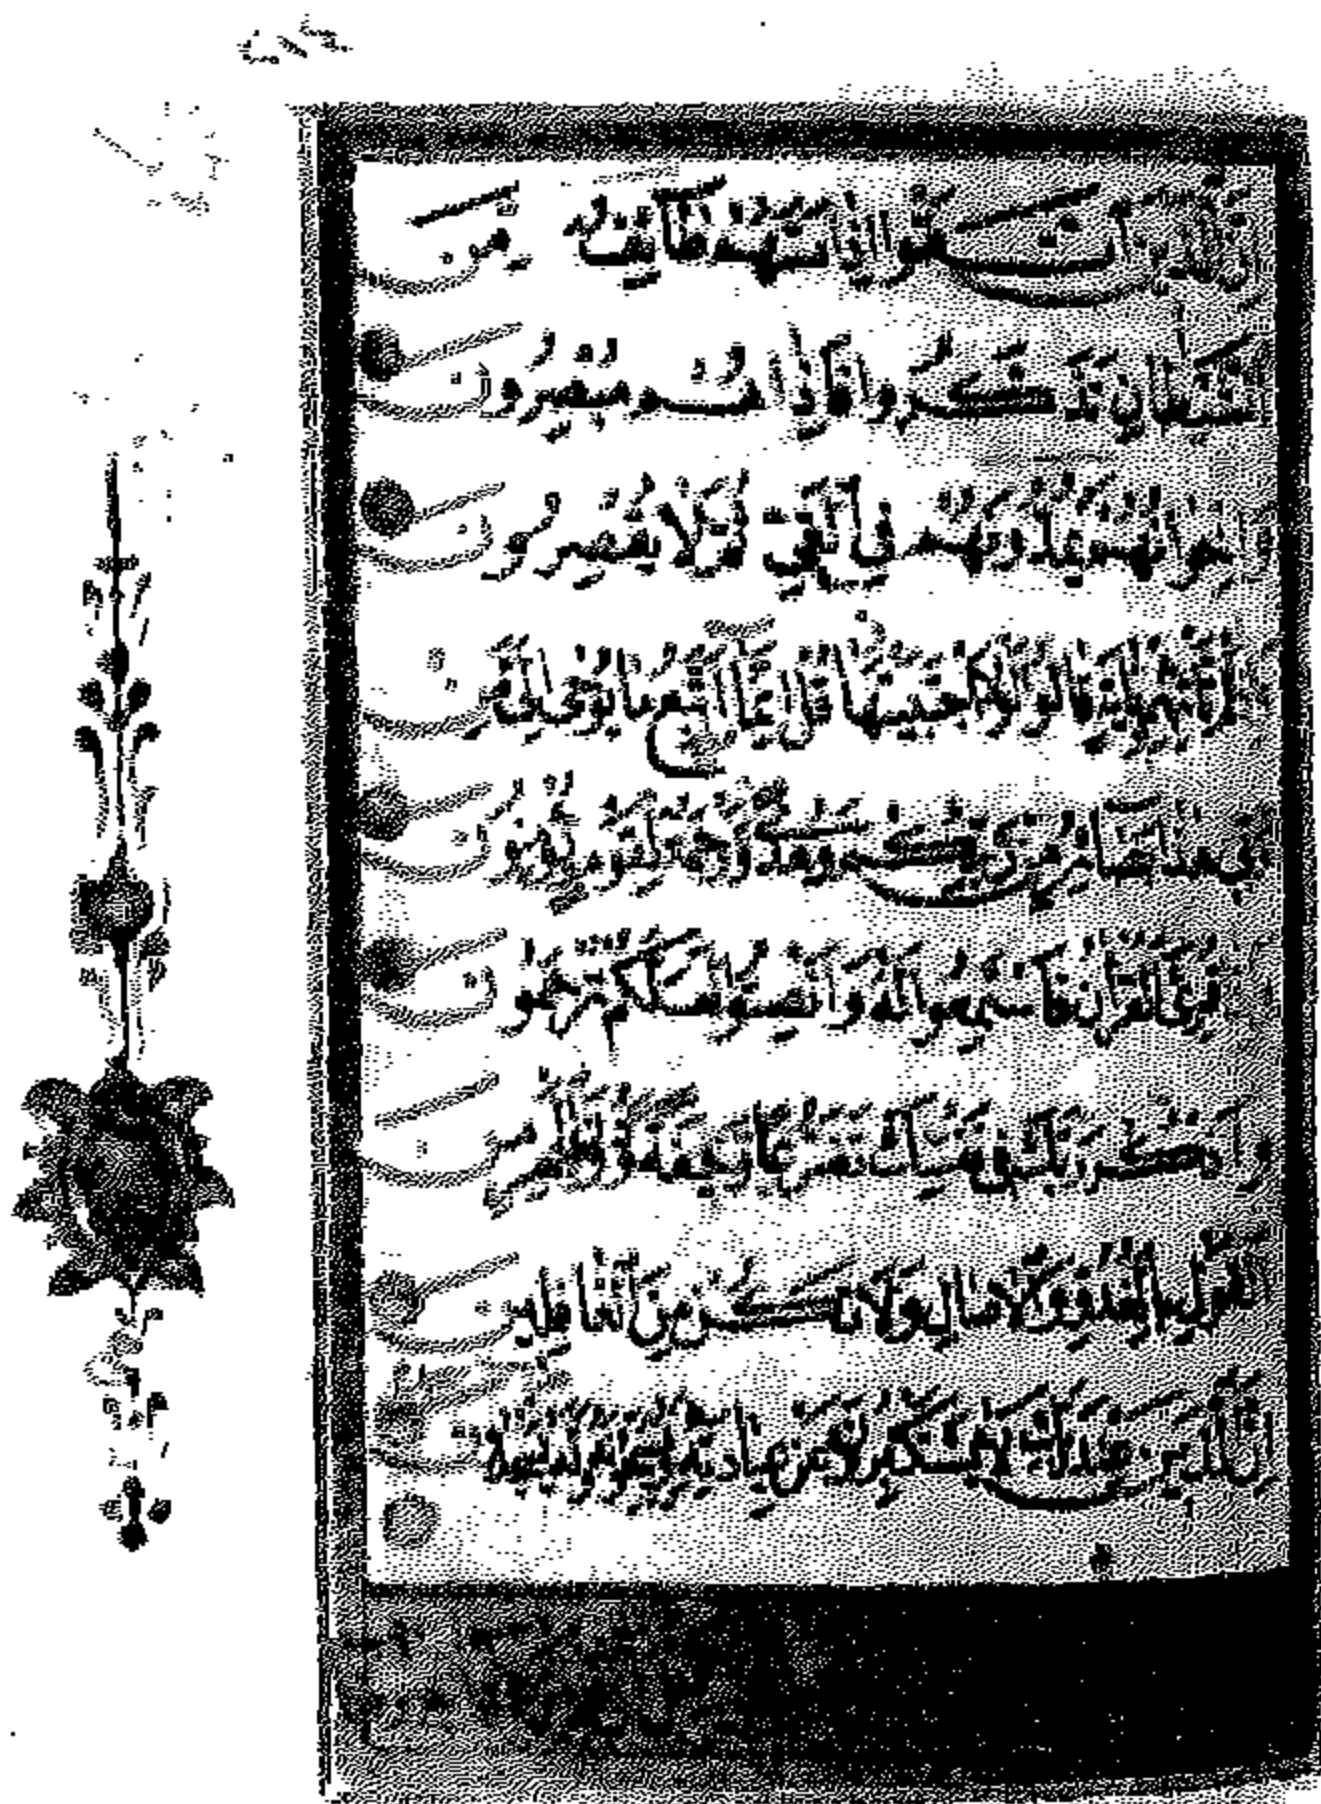 إِنَّ الَّذِينَ اتَّقَوْا إِذَا مَسَّهُمْ طَائِفٌ مِنَ
الشَّيْطَانِ تَذَكَّرُوا فَإِذَا هُمْ مُبْصِرُونَ
وَإِخْوَانُهُمْ يَمُدُّونَهُمْ فِي الْغَيِّ ثُمَّ لَا يُقْصِرُونَ
لَمْ تَأْتِهِمْ بِآيَةٍ قَالُوا لَوْلَا اجْتَبَيْتَهَا قُلْ إِنَّمَا أَتَّبِعُ مَا يُوحَى إِلَيَّ مِنْ
رَبِّي هَذَا بَصَائِرُ مِنْ رَبِّكُمْ وَهُدًى وَرَحْمَةٌ لِقَوْمٍ يُؤْمِنُونَ
قُرِئَ الْقُرْآنُ فَاسْتَمِعُوا لَهُ وَأَنْصِتُوا لَعَلَّكُمْ تُرْحَمُونَ
وَاذْكُرْ رَبَّكَ فِي نَفْسِكَ تَضَرُّعًا وَخِيفَةً وَدُونَ الْجَهْرِ مِنَ
الْقَوْلِ بِالْغُدُوِّ وَالْآصَالِ وَلَا تَكُنْ مِنَ الْغَافِلِينَ
إِنَّ الَّذِينَ عِنْدَ رَبِّكَ لَا يَسْتَكْبِرُونَ عَنْ عِبَادَتِهِ وَيُسَبِّحُونَهُ وَلَهُ يَسْجُدُونَ